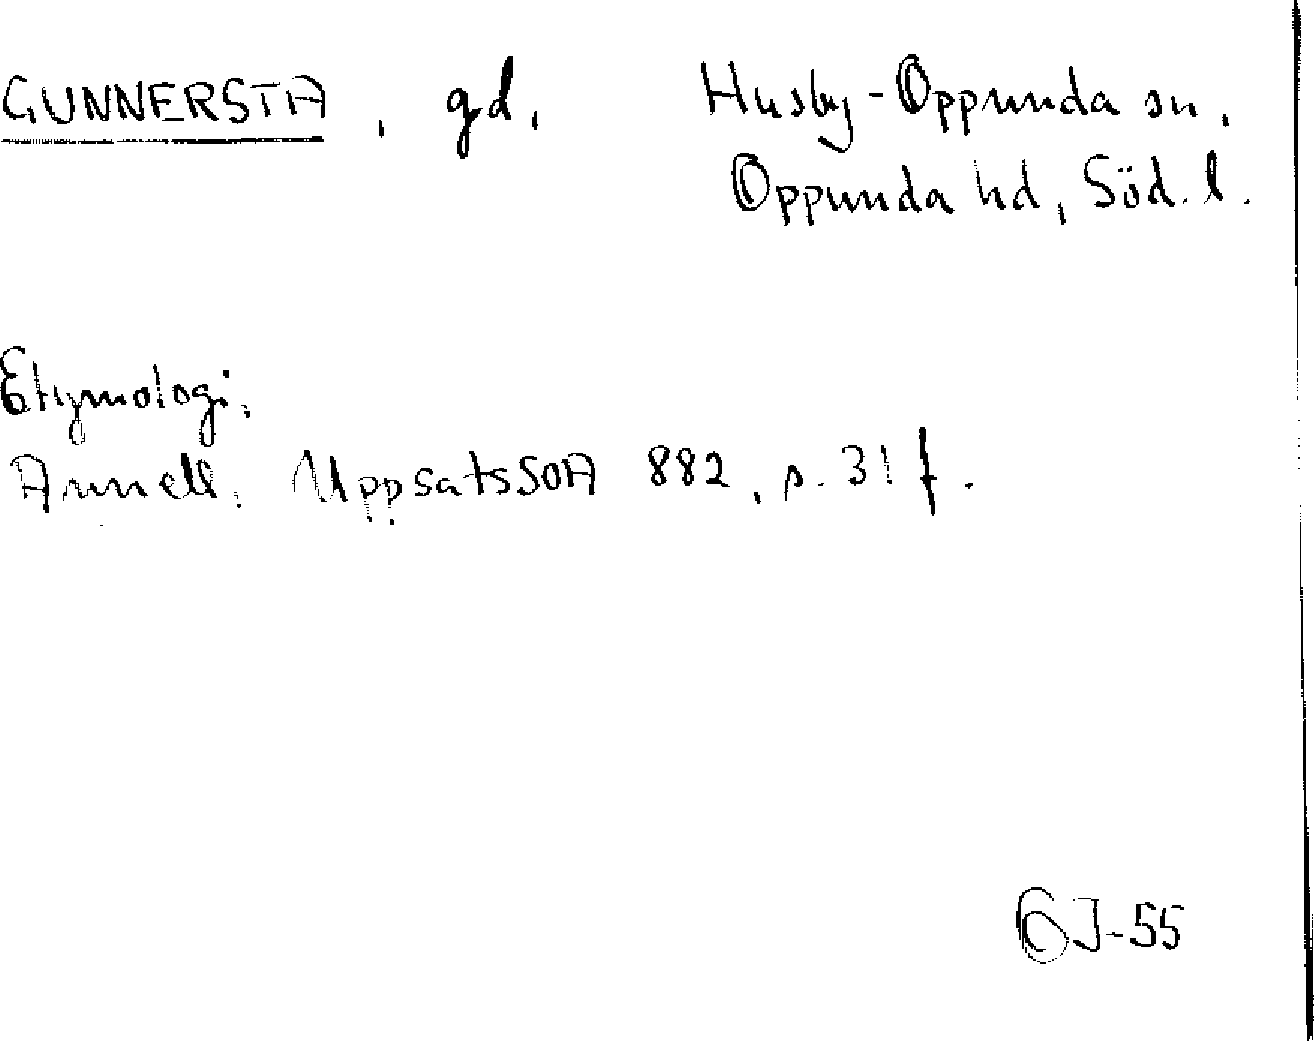 GUNNERSTA, gd. Husby-Oppunda sn,
Oppunda hd, Söd. l.
Etymologi.
Annell. UppsatsSOA 882, s. 31 f.
GJ-55